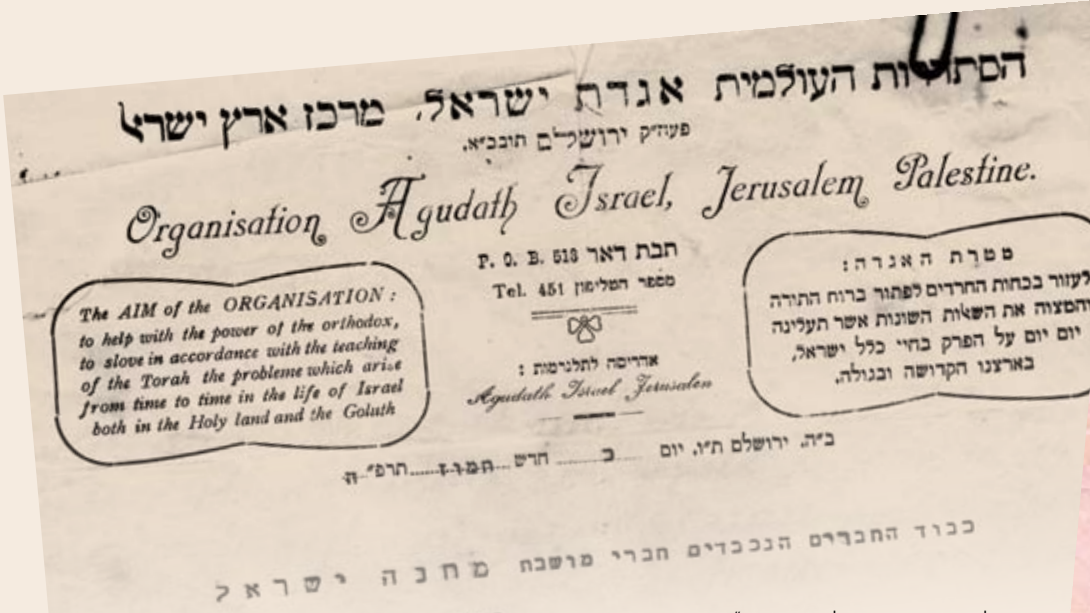 הסתדרות העולמית אגדת ישראל, מרכז ארץ ישראל
פעיה״ק ירושלים תובב״א.
Organisation Agudath Israel, Jerusalem Palestine.
The AIM of the ORGANISATION :
to help with the power of the orthodox,
to slove in accordance with the teaching
of the Torah the probleme which arise
from time to time in the life of Israel
both in the Holy land and the Goluth
P. O. B. 513 תבת דאר
Tel. 451 מספר הטליפון
אדריסה לתלגרמות :
Agudath Israel Jerusalem
מטרת האגדה :
לעזור בכחות החרדים לפתור ברוח התורה
והמצוה את השאלות השונות אשר תעלינה
יום יום על הפרק בחיי כלל ישראל,
בארצנו הקדושה ובגולה.
ב״ה, ירושלם ת״ו, יום כ חדש תמוז תרפ״ה
כבוד החברים הנכבדים חברי מושבת מחנה ישראל